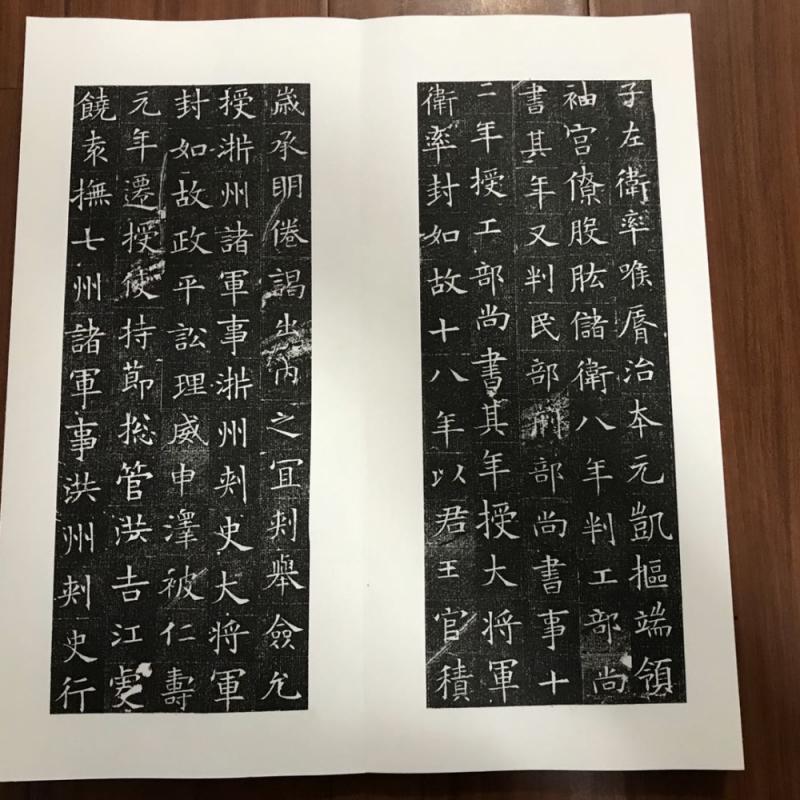 子左衛率喉脣治本元凱摳端領
袖宫僚股肱儲衛八年判工部尚
書其年又判民部刑部尚書事十
二年授工部尚書其年授大将軍
衛率封如故十八年以君王官積
歳承明倦謁出内之冝刾舉僉允
授淅州諸軍事淅州刾史大将軍
封如故政平訟理威申澤被仁壽
元年遷授使持莭捴管洪吉江虔
饒袁撫七州諸軍事洪州刾史行